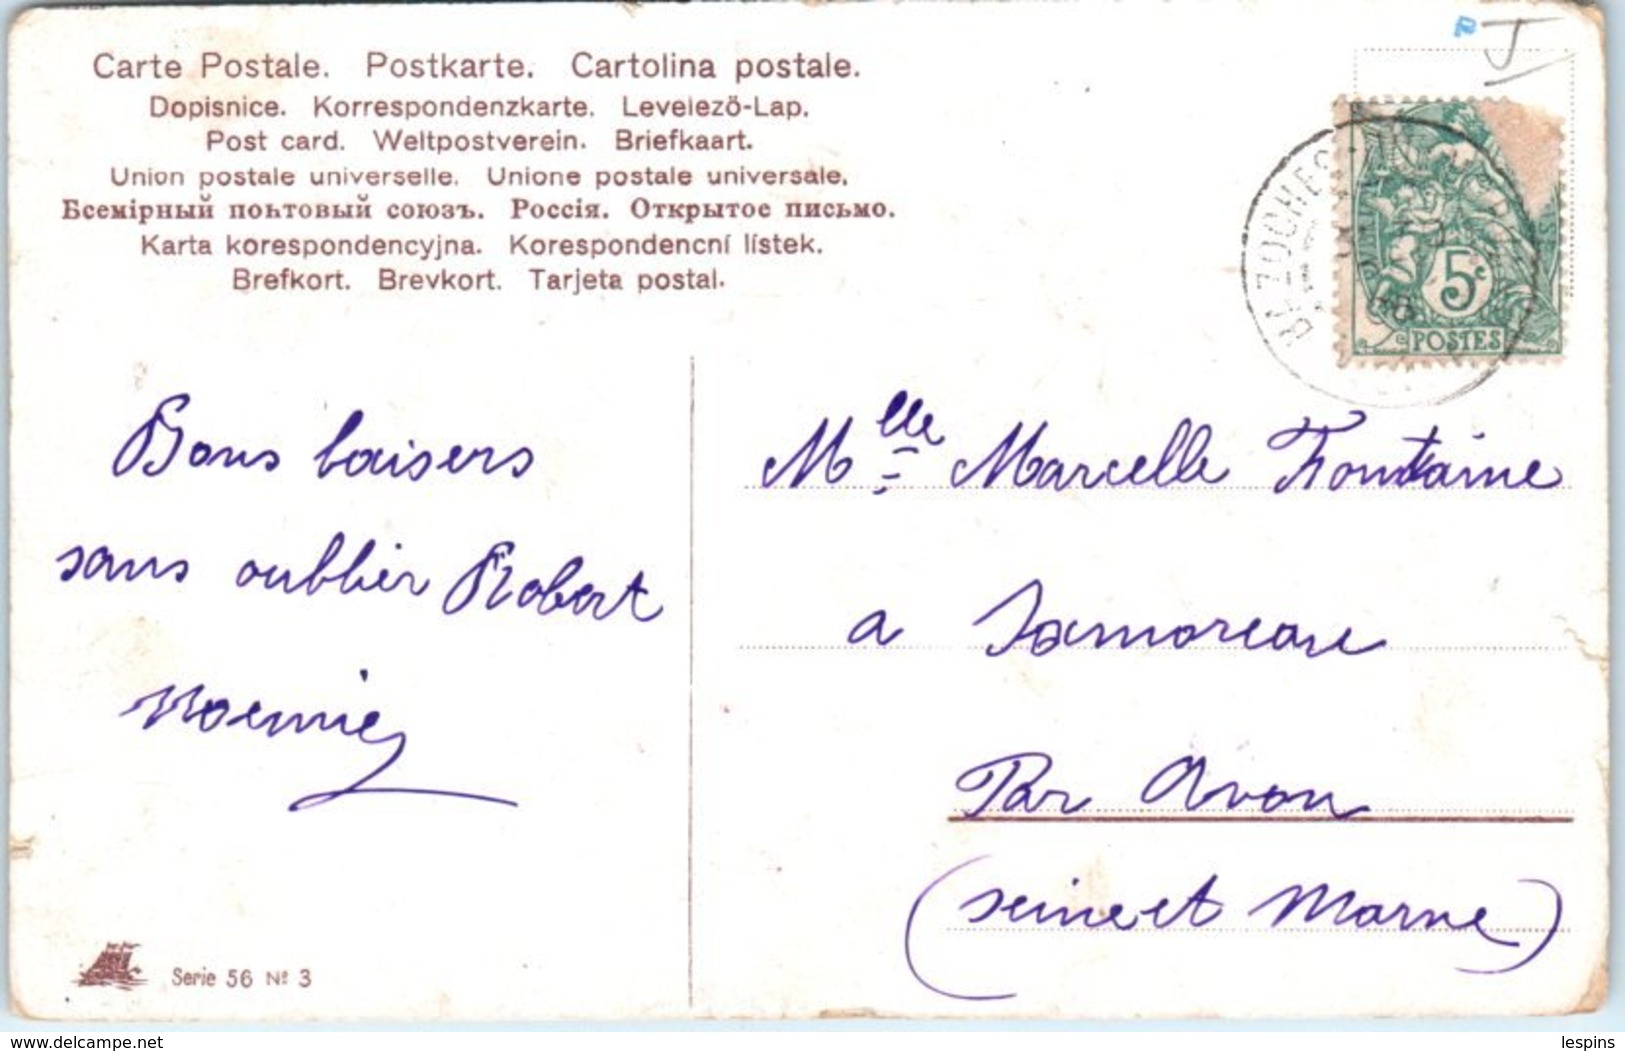 Carte Postale. Postkarte. Cartolina postale.
Dopisnice. Korrespondenzkarte. Levelező-Lap.
Post card. Weltpostverein. Briefkaart.
Union postale universelle. Unione postale universale.
Всемірный почтовый союзъ. Россія. Открытое письмо.
Karta korespondencyjna. Korespondenční lístek.
Brefkort. Brevkort. Tarjeta postal.
5c
POSTES
Bons baisers
sans oublier Robert
Noemie
Mlle Marcelle Fontaine
a Samoreau
Par Avon
(Seine et Marne)
Serie 56 № 3
www.delcampe.net
lespins